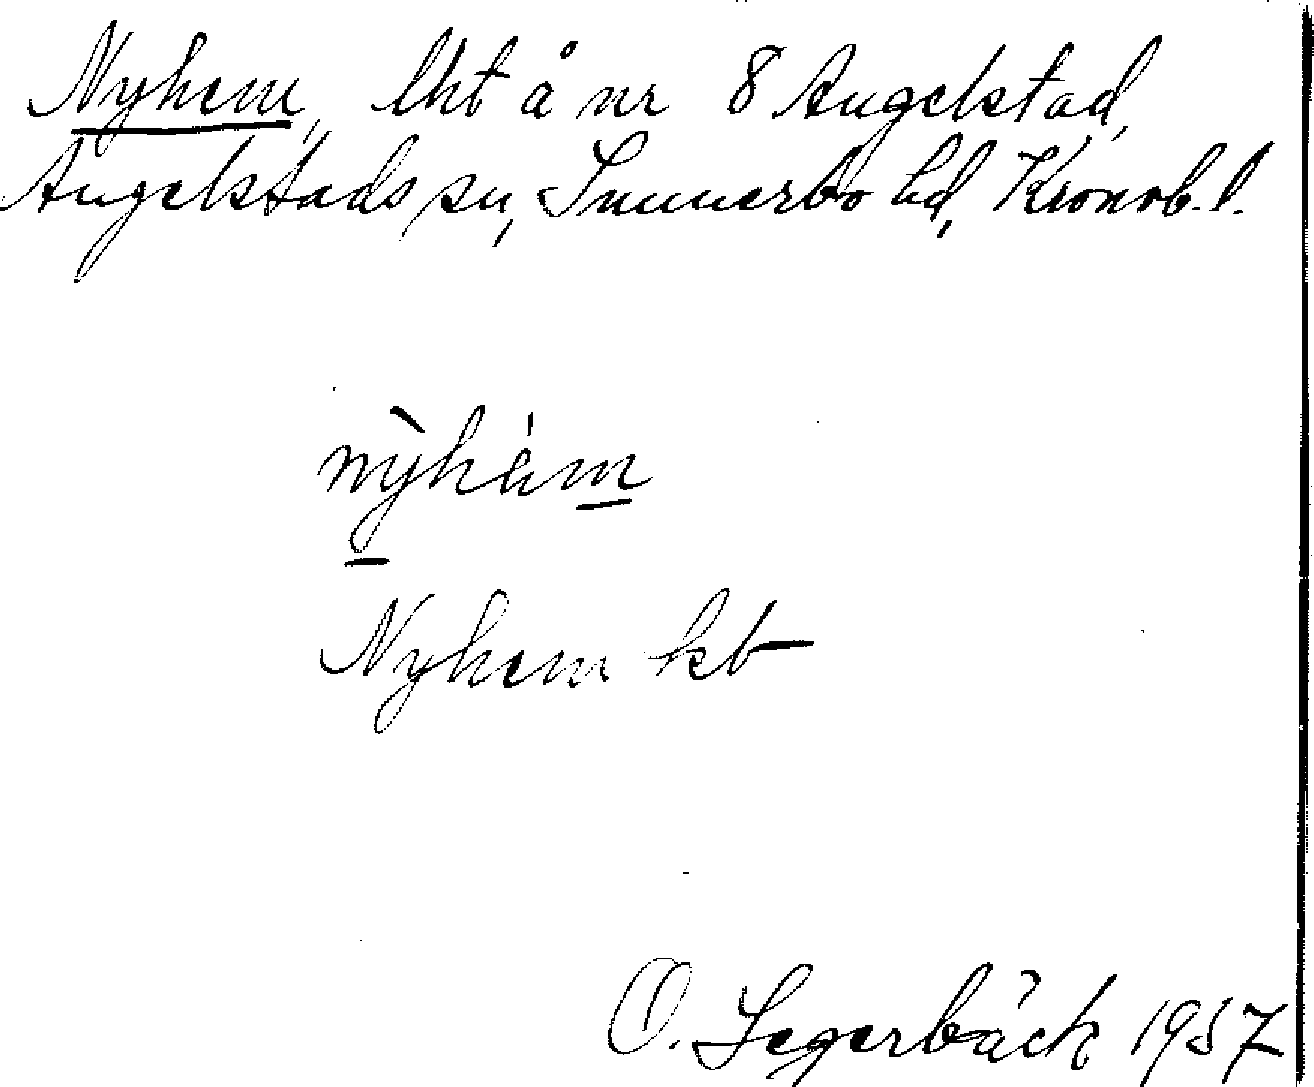 Nyhem, lht å nr 8 Angelstad,
Angelstads sn, Sunnerbo hd, Kronob. l.
nỳhèm
Nyhem kt
O. Segerbäck 1957